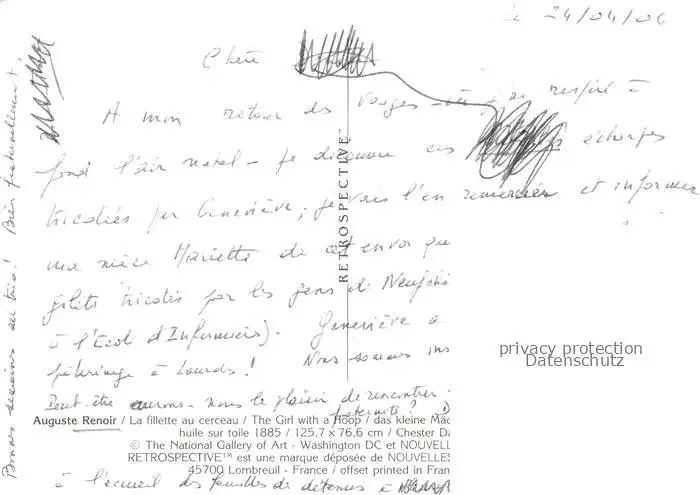 le 24/04/06
Chère
A mon retour des Vosges - où j'ai respiré à
fond l'air natal - je découvre ces écharpes
tricotées par Geneviève ; je vais l'en remercier et informer
ma nièce Mariette de cet envoi que
gilets tricotés par les gens de Neufch
à l'Ecole d'Infirmiers). Geneviève a
pèlerinage à Lourdes ! Nous sommes ins
Peut-être aurons-nous le plaisir de rencontrer
fraternité ?
à l'accueil des familles de détenus à
Bonnes au trio ! Bien fraternellement !
RETROSPECTIVE™
privacy protection
Datenschutz
Auguste Renoir / La fillette au cerceau / The Girl with a Hoop / das kleine Mäd
huile sur toile 1885 / 125,7 × 76,6 cm / Chester Da
© The National Gallery of Art - Washington DC et NOUVELL
RETROSPECTIVE™ est une marque déposée de NOUVELLES
45700 Lombreuil - France / offset printed in Fran